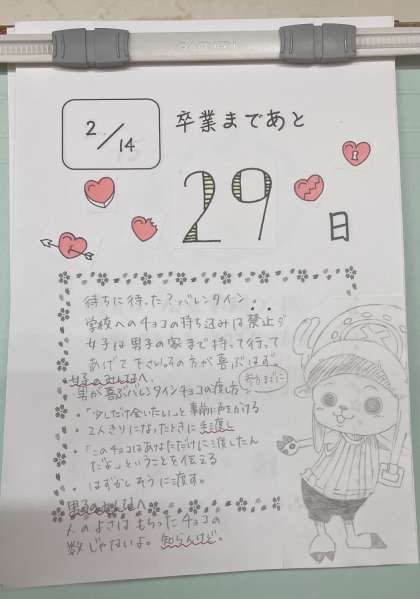 2/14
卒業まであと
29
日
待ちに待った？バレンタイン・・
学校へのチョコの持ち込みは禁止
女子は男子の家まで持って行って
あげて下さい。その方が喜ぶはず。
女子のみんなへ、
おせっかいに
男が喜ぶバレンタインチョコの渡し方
・「少しだけ会いたい」と事前に声をかける
・2人きりになったときに手渡し
・「このチョコはあなただけに渡したん
だよ」ということを伝える
・はずかしそうに渡す。
男子のみんなへ
人のよさはもらったチョコの
数じゃないよ。知らんけど。